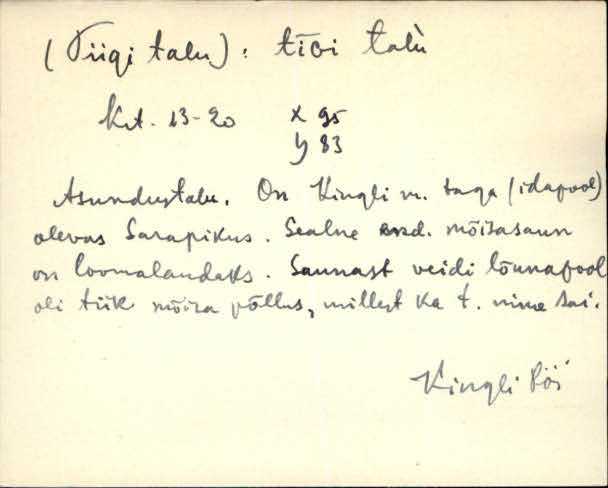 (Tiigi talu): tīGi talù
Krt. 13-20 x 95
y 83
Asundustalu. On Kingli m. taga (idapool)
olevas Sarapikus. Sealne end. mõisasaun
on loomalaudaks. Saunast veidi lõunapool
oli tiik mõisa põllus, millest ka t. nime sai.
Kingli Pöi